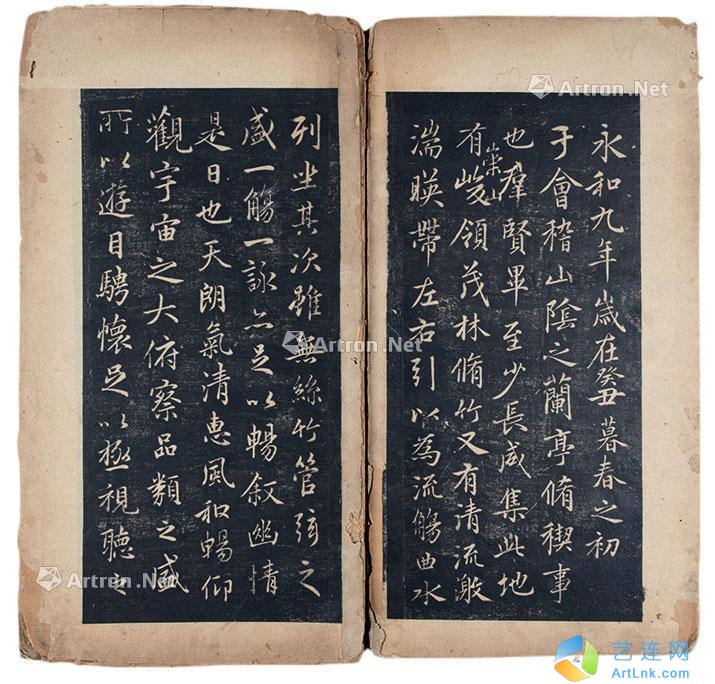 永和九年歲在癸丑暮春之初會
于會稽山陰之蘭亭脩稧事
也羣賢畢至少長咸集此地
有崇山峻領茂林脩竹又有清流激
湍暎帶左右引以為流觴曲水
列坐其次雖無絲竹管弦之
盛一觴一詠亦足以暢敘幽情
是日也天朗氣清惠風和暢仰
觀宇宙之大俯察品類之盛
所以遊目騁懷足以極視聽之
Artron.Net
Artron.Net
Artron.Net
Artron.Net
Artron.Net
艺连网
ArtLnk.com